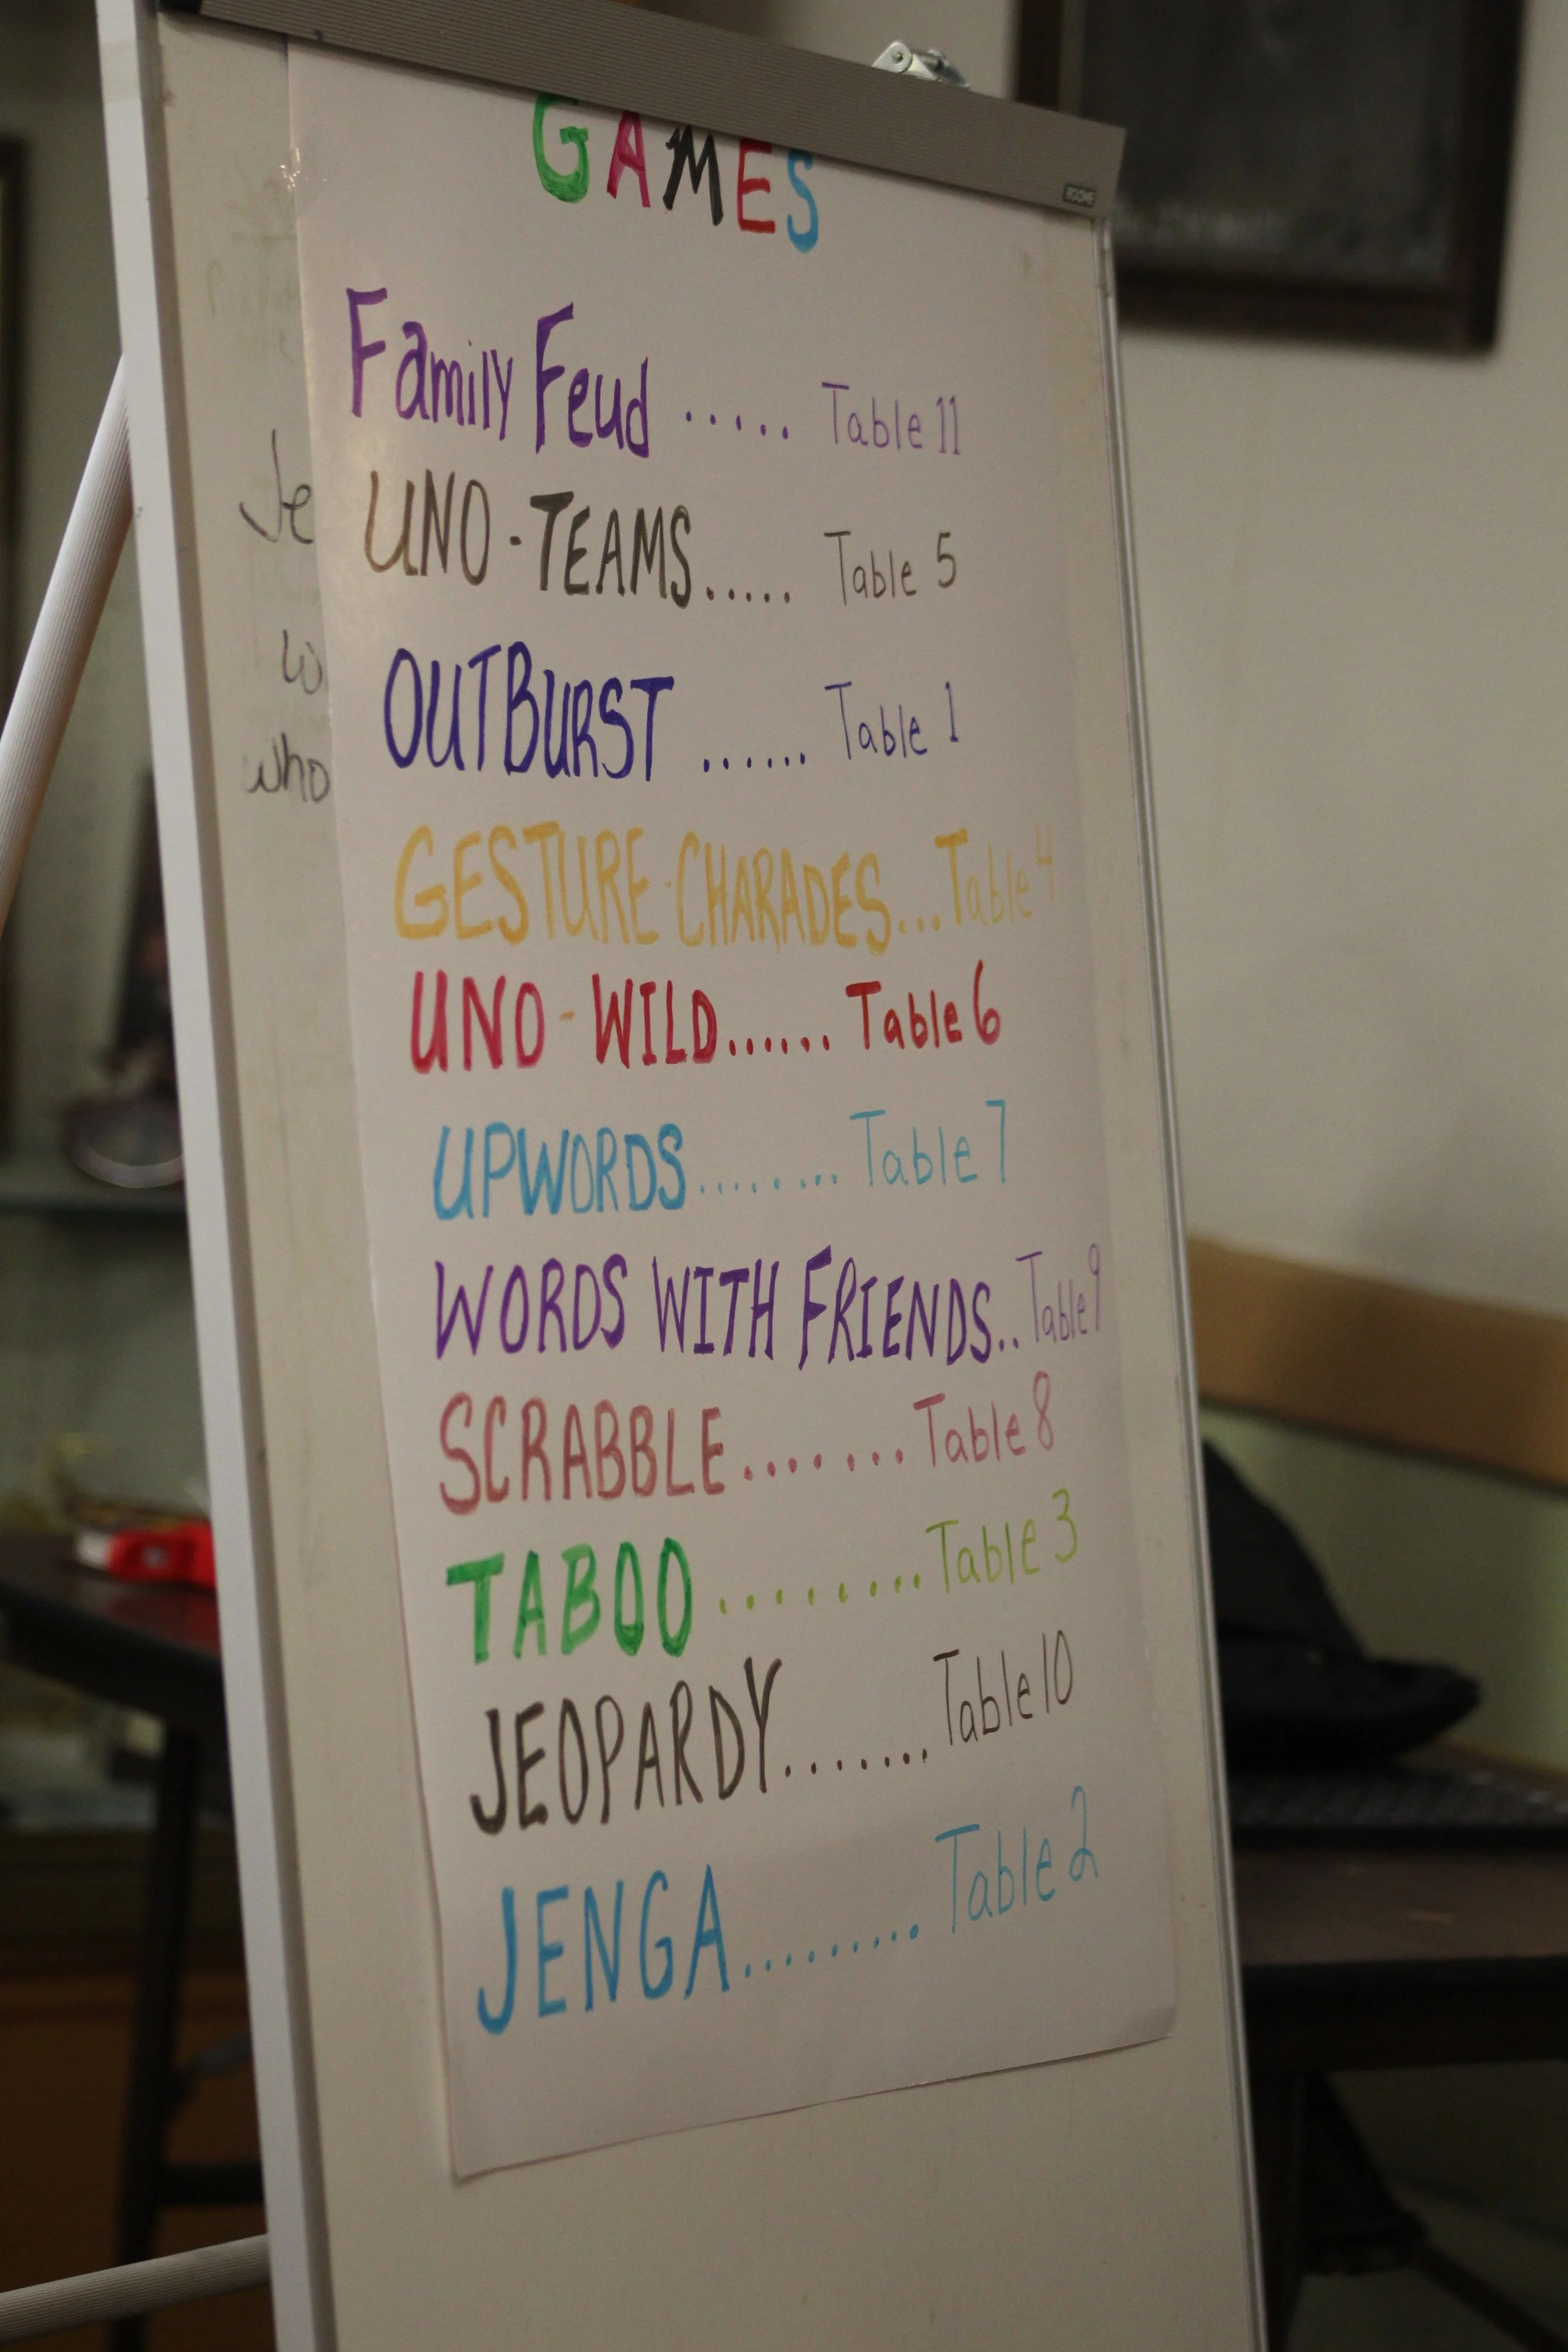 GAMES
Family Feud ..... Table 11
UNO-TEAMS..... Table 5
OUTBURST ...... Table 1
GESTURE-CHARADES...Table 4
UNO-WILD...... Table 6
UPWORDS........ Table 7
WORDS WITH FRIENDS.. Table 9
SCRABBLE....... Table 8
TABOO ......... Table 3
JEOPARDY....... Table 10
JENGA......... Table 2
Je
w
who